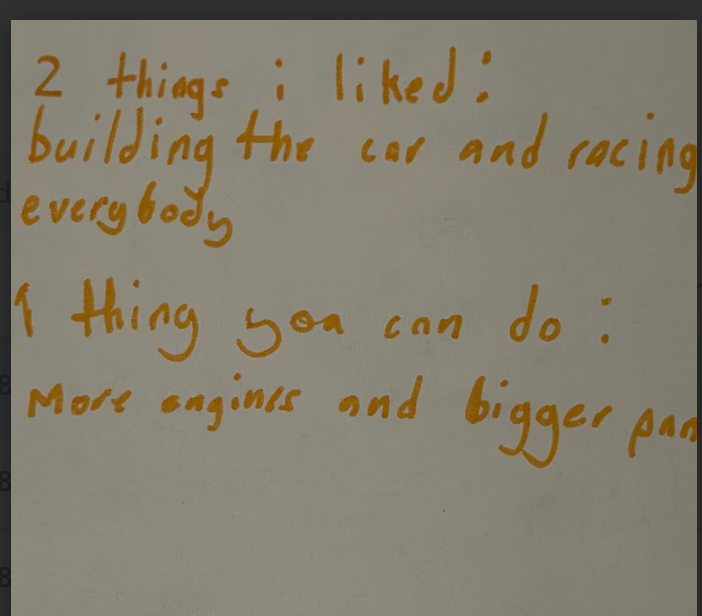 2 things i liked:
building the car and racing
everybody
1 thing you can do :
More engines and bigger